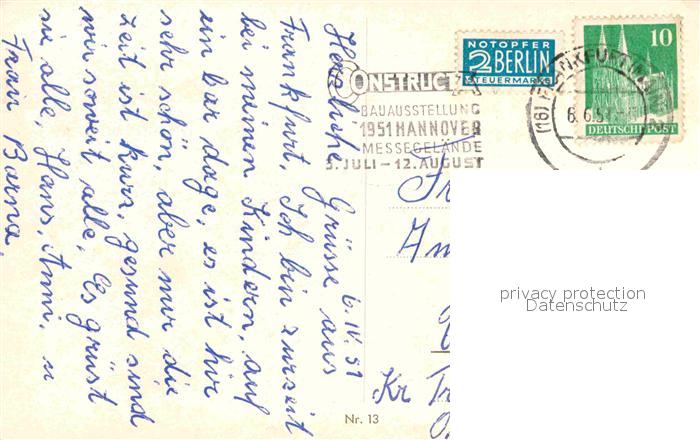 6. IV. 51
Herzliche Grüsse aus
Frankfurt. Ich bin zurzeit
bei meinen Kindern, auf
ein bar dage, es ist hir
sehr schön, aber nur die
Zeit ist kurz, gesund sind
wir soweit alle. Es grüst
sie alle, Hans, Anni, u
Frau Barna.
NOTOPFER
2 BERLIN
STEUERMARKE
10
DEUTSCHE POST
CONSTRUCTA
BAUAUSSTELLUNG
1951 HANNOVER
MESSEGELÄNDE
3. JULI – 12. AUGUST
(16) FRANKFURT (MAIN)
6.6.51
Fr
An
Kr Tr
O.
Nr. 13
privacy protection
Datenschutz